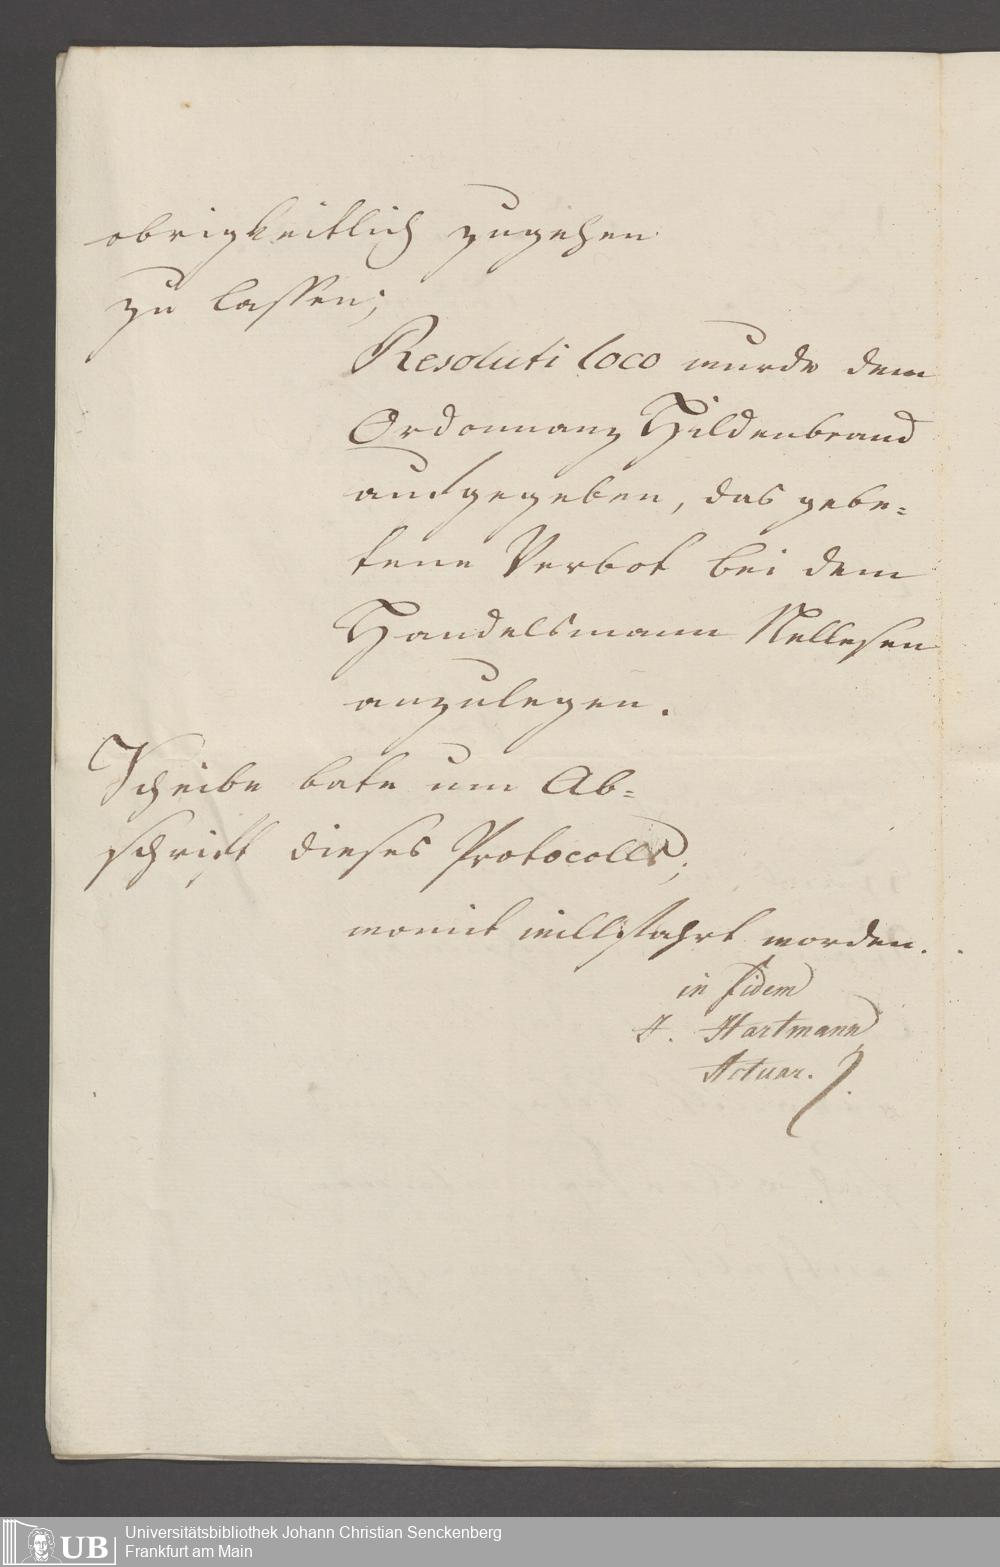 obrigkeitlich zugehen
zu lassen;
Resoluti loco wurde dem
Ordonnanz Hildenbrand
aufgegeben, das gebe=
tene Verbot bei dem
Handelsmann Nellesen
anzulegen.
Scheibe bate um Ab=
schrift dieses Protocolls;
womit willfahrt worden.
in fidem
Hartmann
Actuar.
UB
Universitätsbibliothek Johann Christian Senckenberg
Frankfurt am Main